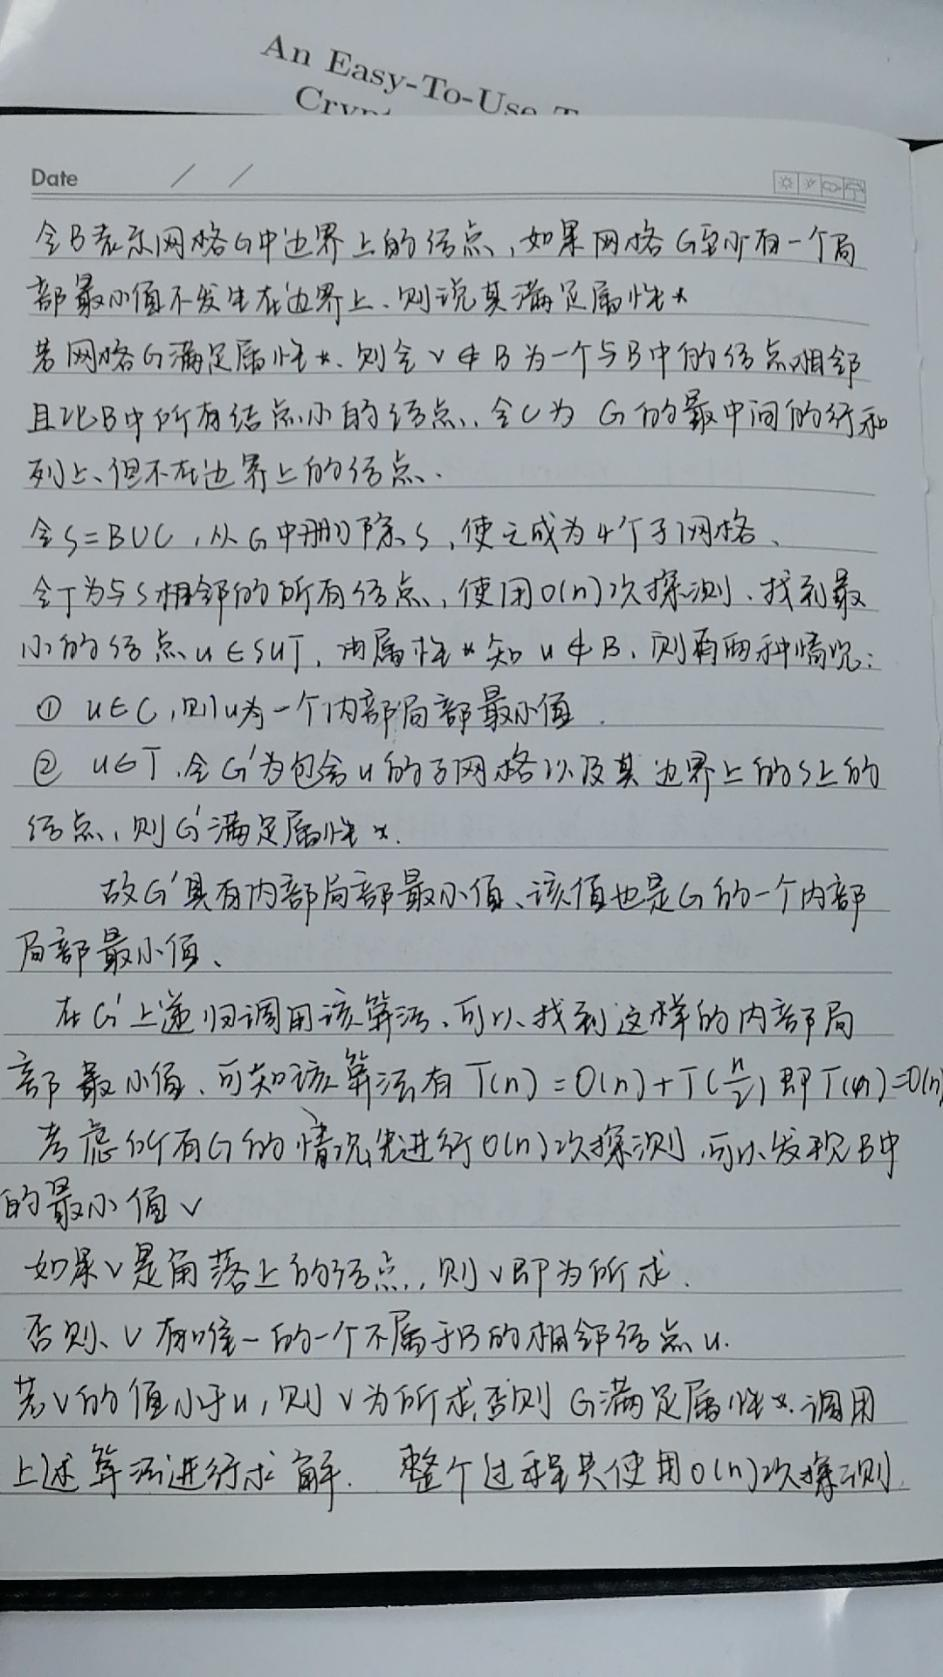 An Easy-To-Use T
Crypt
Date / /
令B表示网格G中边界上的结点,如果网格G至少有一个局
部最小值不发生在边界上、则说其满足属性*
若网格G满足属性*.则令v∉B为一个与B中的结点相邻
且比B中所有结点小的结点、令C为 G的最中间的行和
列上、但不在边界上的结点.
令S=B∪C,从G中删除S,使之成为4个子网格、
令T为与S相邻的所有结点,使用O(n)次探测、找到最
小的结点u∈S∪T,由属性*知u∉B,则有两种情况:
① u∈C,则u为一个内部局部最小值.
② u∈T.令G'为包含u的子网格以及其边界上的S上的
结点,则G'满足属性*.
故G'具有内部局部最小值、该值也是G的一个内部
局部最小值、
在G'上递归调用该算法、可以找到这样的内部局
部最小值、可知该算法有T(n)=O(n)+T(n/2)即T(n)=O(n)
考虑所有G的情况先进行O(n)次探测,可以发现B中
的最小值v
如果v是角落上的结点,则v即为所求.
否则、v有唯一的一个不属于B的相邻结点u.
若v的值小于u,则v为所求,否则G满足属性*.调用
上述算法进行求解. 整个过程共使用O(n)次探测.